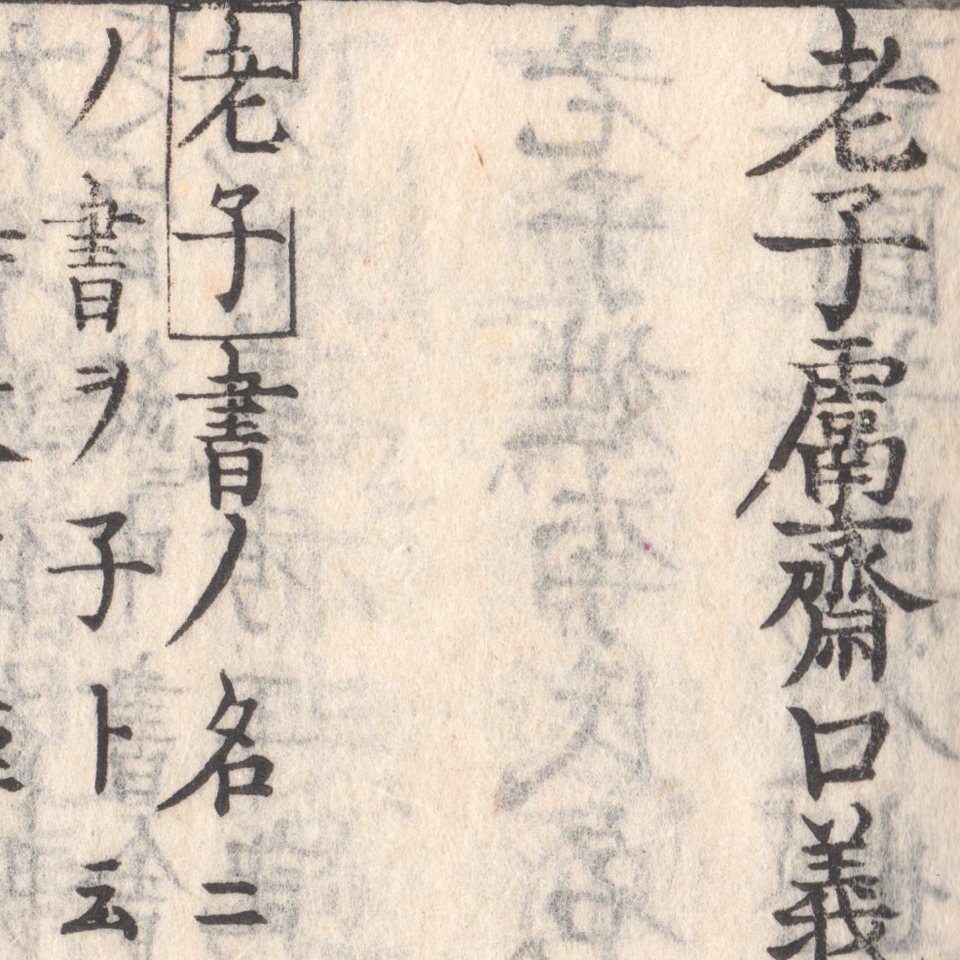 老子鬳齋口義
老子書ノ名ニ
ノ書ヲ子ト云